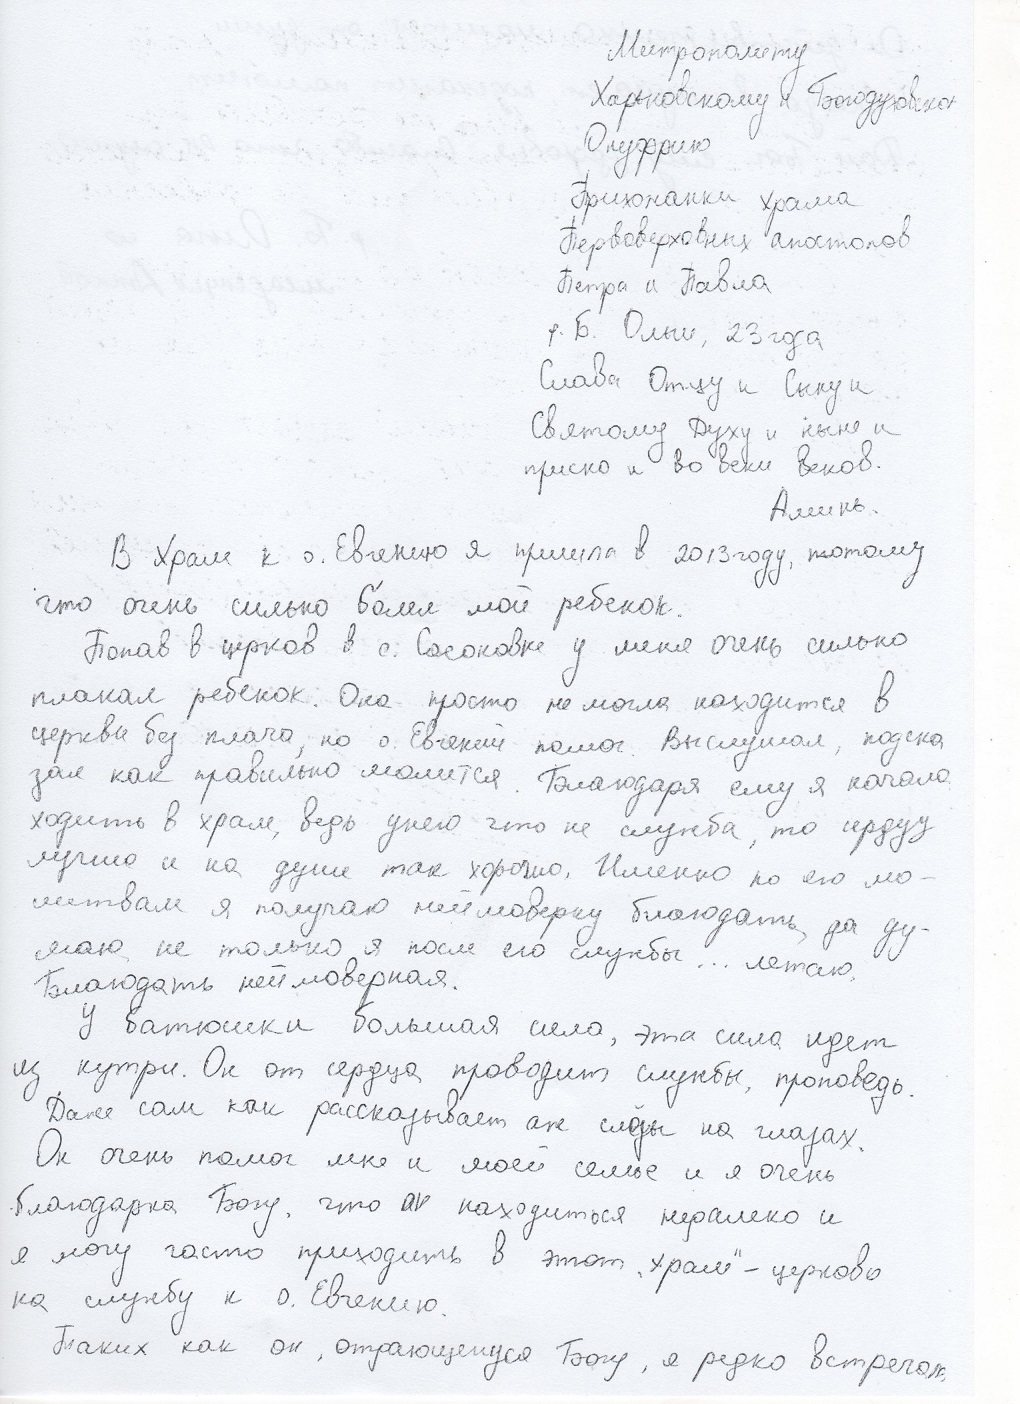 Митрополиту
Харьковскому и Богодуховском
Онуфрию
Прихожанки храма
Первоверховных апостолов
Петра и Павла
р. Б. Ольги, 23 года
Слава Отцу и Сыну и
Святому Духу и ныне и
приско и во веки веков.
Аминь.
В Храм к о. Евгению я пришла в 2013 году, потому
что очень сильно болел мой ребенок.
Попав в церков в с. Сосоновке у меня очень сильно
плакал ребенок. Она просто не могла находится в
церкви без плача, но о. Евгений помог. Выслушал, подска
зал как правильно молится. Благодаря ему я начала
ходить в храм, ведь у него что не служба, то сердцу
лучше и на душе так хорошо. Именно по его мо-
литвам я получаю неймоверну благодать, да ду-
маю не только я после его службы... летаю.
Благодать неймоверная.
У батюшки большая сила, эта сила идет
из нутри. Он от сердца проводит службы, проповедь.
Даже сам как рассказывает аж слёзы на глазах.
Он очень помог мне и моей семье и я очень
благодарна Богу, что он находиться недалеко и
я могу часто приходить в этот „храм" – церковь
на службу к о. Евгению.
Таких как он, отдающегуся Богу, я редко встречаю,